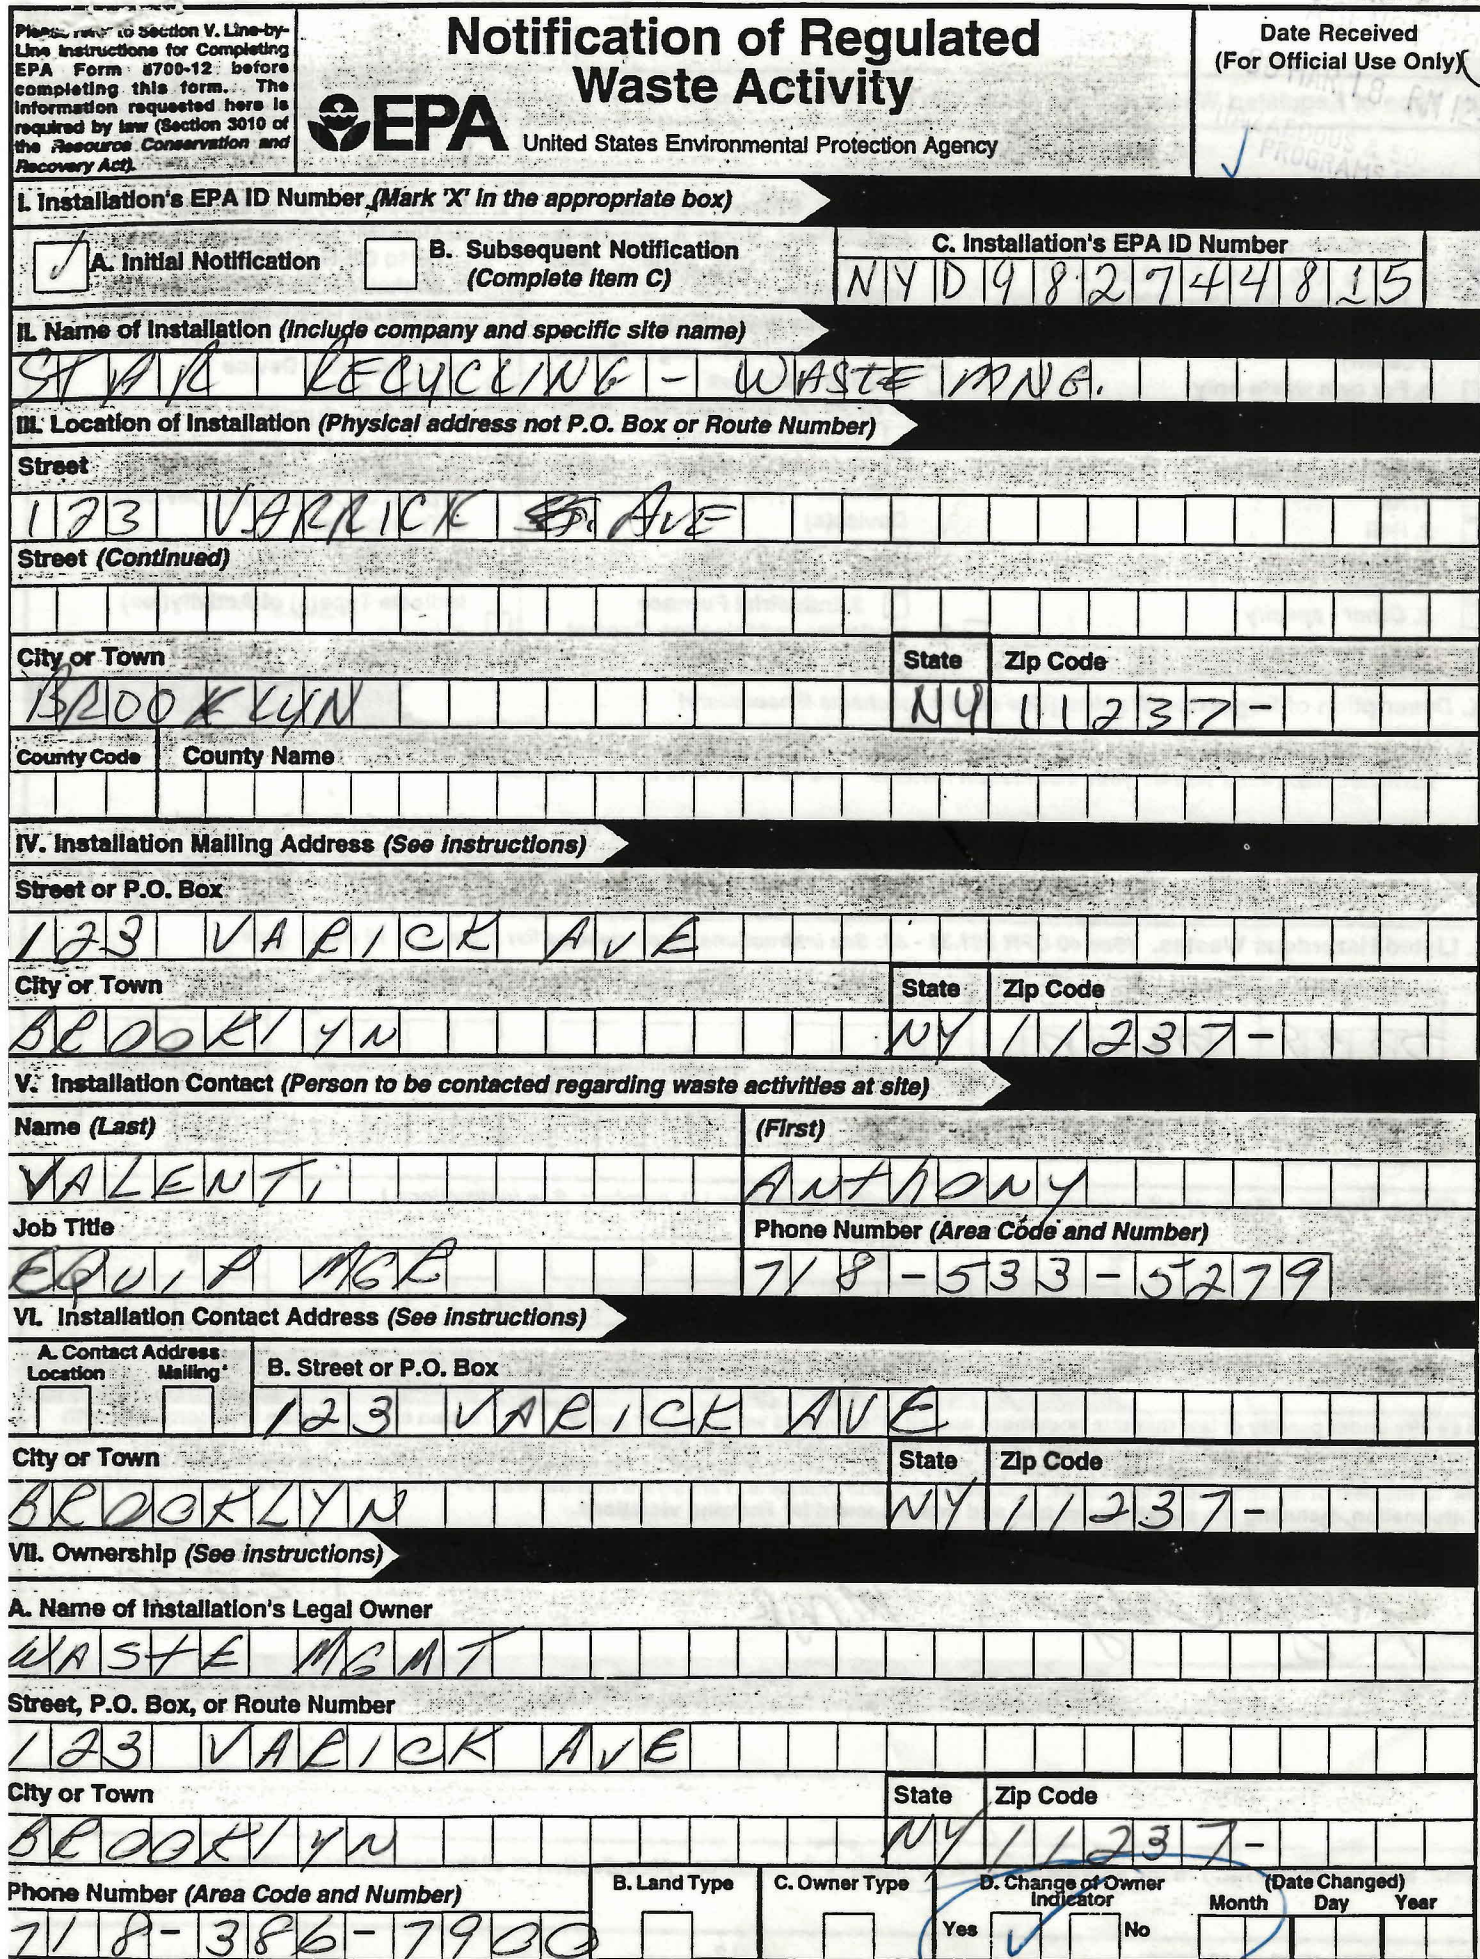 Please refer to Section V. Line-by-
Line Instructions for Completing
EPA Form 8700-12 before
completing this form. The
information requested here is
required by law (Section 3010 of
the Resource Conservation and
Recovery Act).
Notification of Regulated
Waste Activity
EPA
United States Environmental Protection Agency
Date Received
(For Official Use Only)
I. Installation's EPA ID Number (Mark 'X' in the appropriate box)
A. Initial Notification
B. Subsequent Notification
(Complete item C)
C. Installation's EPA ID Number
NYD982744815
II. Name of Installation (Include company and specific site name)
STAR RECYCLING - WASTE MNG.
III. Location of Installation (Physical address not P.O. Box or Route Number)
Street
123 VARRICK AVE
Street (Continued)
City or Town State Zip Code
BROOKLYN NY 11237-
County Code County Name
IV. Installation Mailing Address (See instructions)
Street or P.O. Box
123 VARICK AVE
City or Town State Zip Code
BROOKLYN NY 11237-
V. Installation Contact (Person to be contacted regarding waste activities at site)
Name (Last) (First)
VALENTi ANthONY
Job Title Phone Number (Area Code and Number)
EQUIP MGR 718-533-5279
VI. Installation Contact Address (See instructions)
A. Contact Address
Location Mailing
B. Street or P.O. Box
123 VARICK AVE
City or Town State Zip Code
BROOKLYN NY 11237-
VII. Ownership (See instructions)
A. Name of Installation's Legal Owner
WAStE MGMT
Street, P.O. Box, or Route Number
123 VARICK AVE
City or Town State Zip Code
BROOKLYN NY 11237-
Phone Number (Area Code and Number) B. Land Type C. Owner Type D. Change of Owner Indicator (Date Changed)
Month Day Year
718-386-7900 Yes No